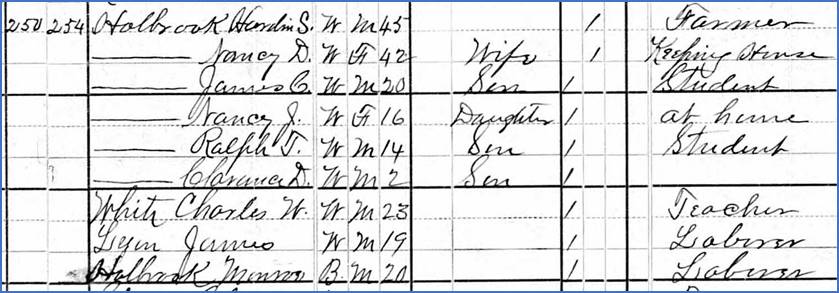 250 254 Holbrook Hardin S. W M 45 / Farmer
—— Nancy D. W F 42 Wife / Keeping House
—— James C. W M 20 Son / Student
—— Nancy J. W F 16 Daughter / at home
—— Ralph T. W M 14 Son / Student
—— Clarence D. W M 2 Son /
White Charles W. W M 23 / Teacher
Lyon James W M 19 / Laborer
Holbrook Monroe B. M 20 / Laborer